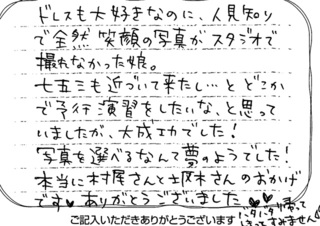 ドレスも大好きなのに、人見知り
で全然笑顔の写真がスタジオで
撮れなかった娘。
七五三も近づいて来たし…とどこか
で予行演習をしたいな、と思って
いましたが、大成功でした！
写真を選べるなんて夢のようでした！
本当に村尾さんと土阪木さんのおかげ
です♥ありがとうございました♥♥
ご記入いただきありがとうございます！
バタバタ帰って
しまってすみません